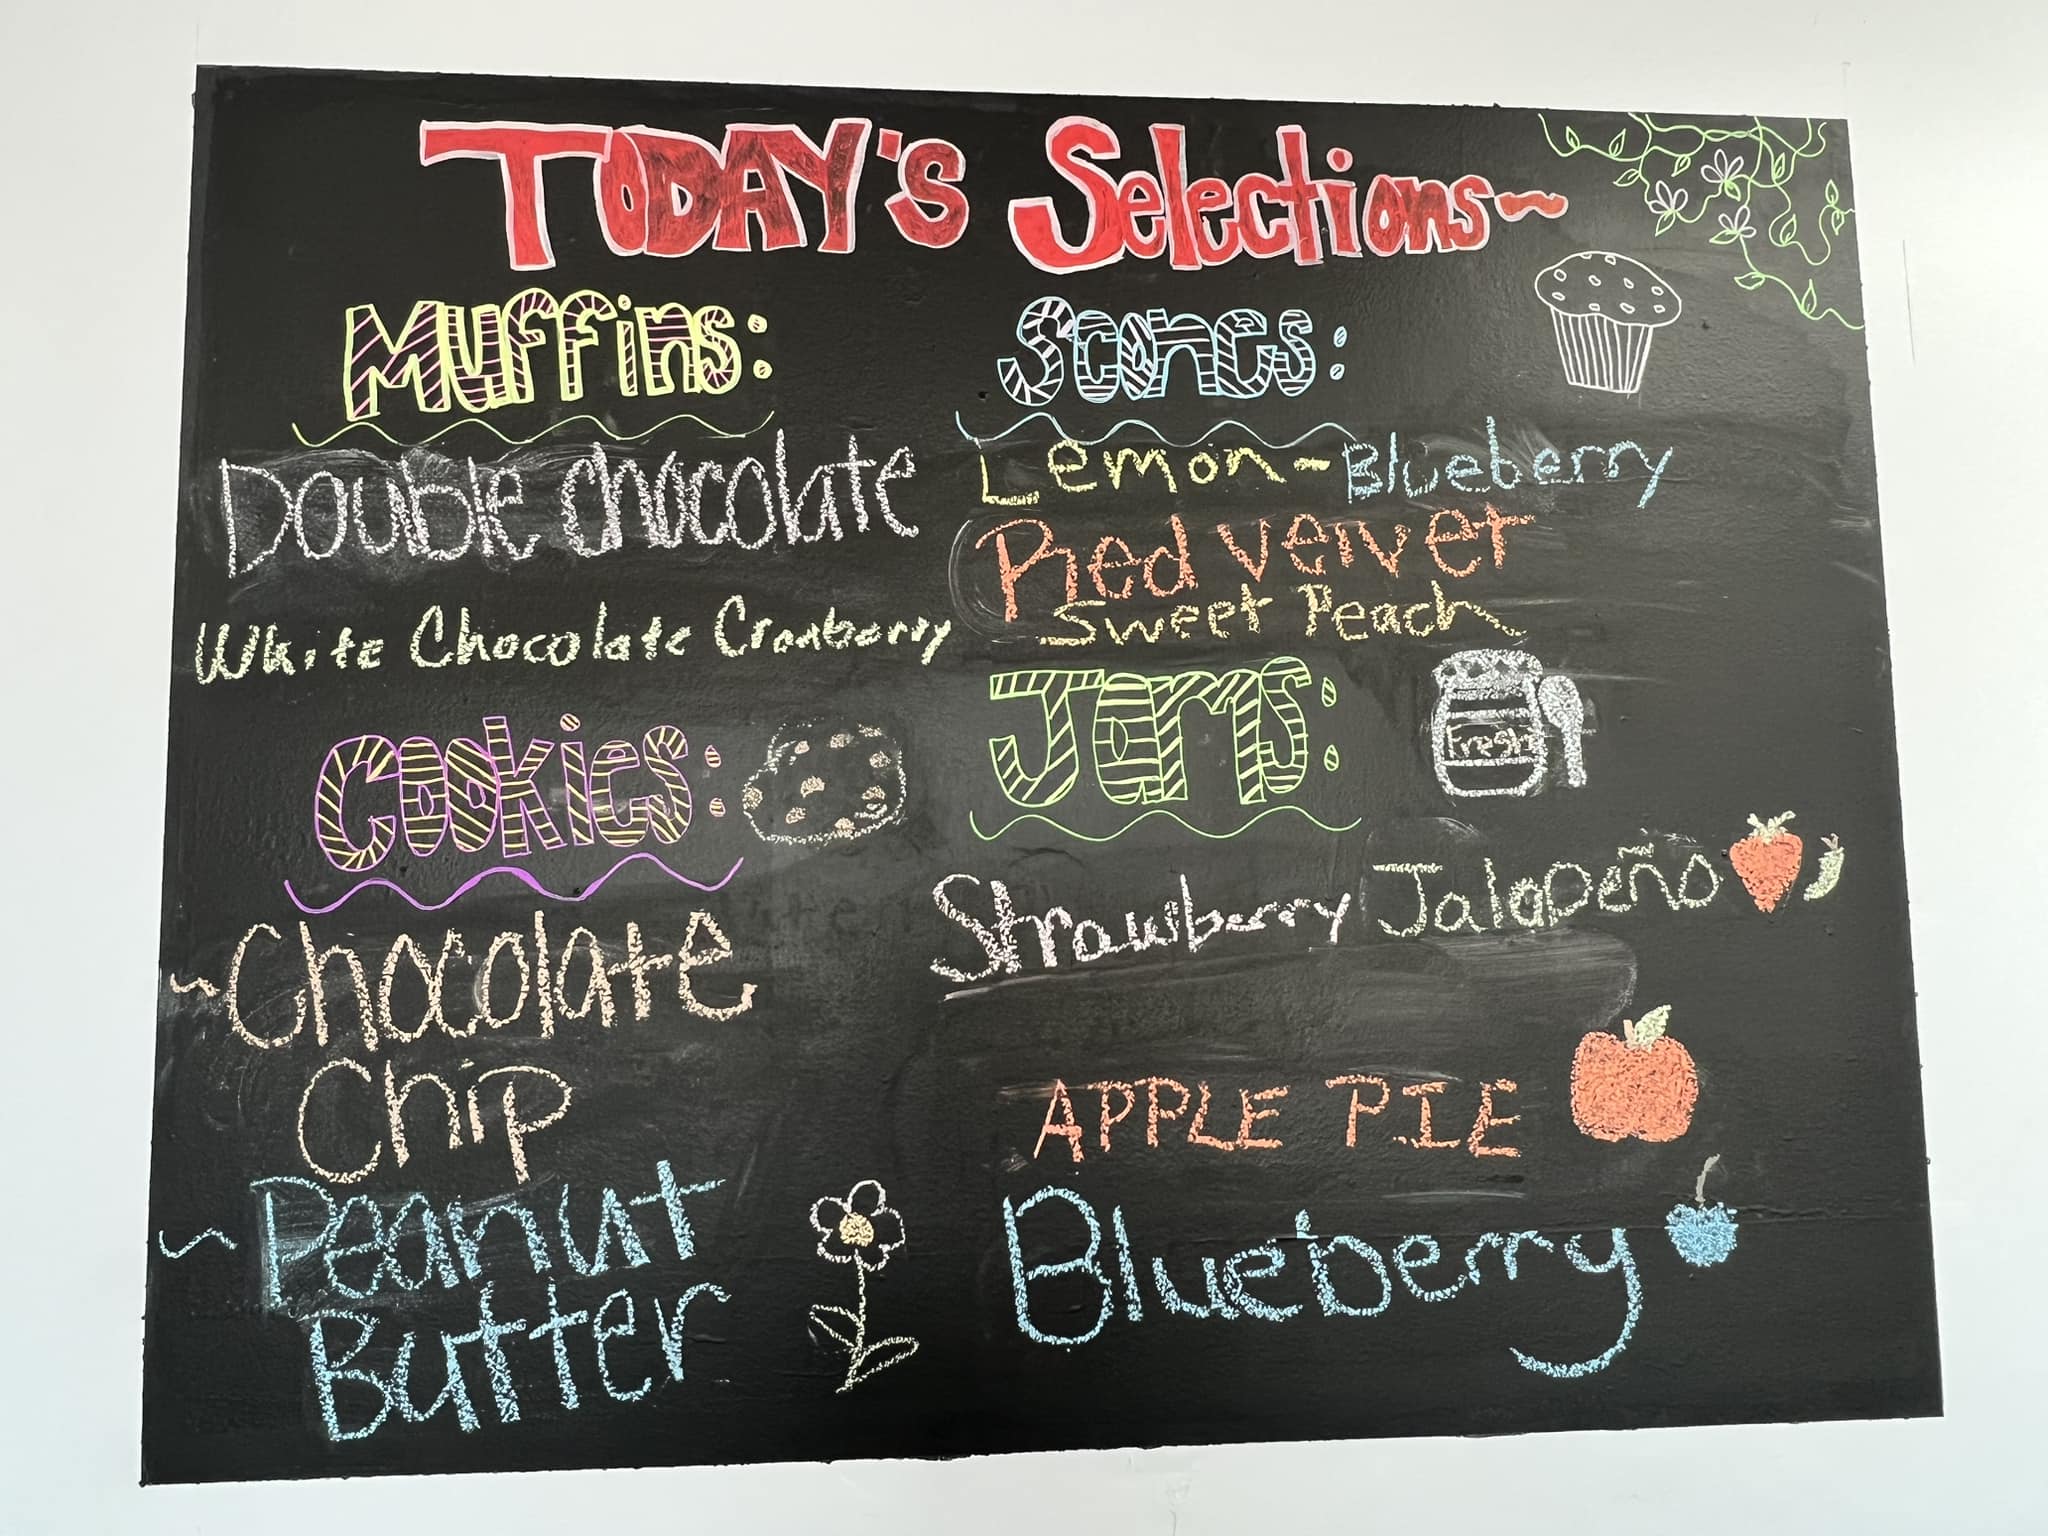 TODAY's Selections~
Muffins:
Double chocolate
White Chocolate Cranberry
Cookies:
~Chocolate
Chip
~ Peanut
Butter
Scones:
Lemon-Blueberry
Red velvet
Sweet Peach
Jams:
Fresh
Strawberry Jalapeño
APPLE PIE
Blueberry